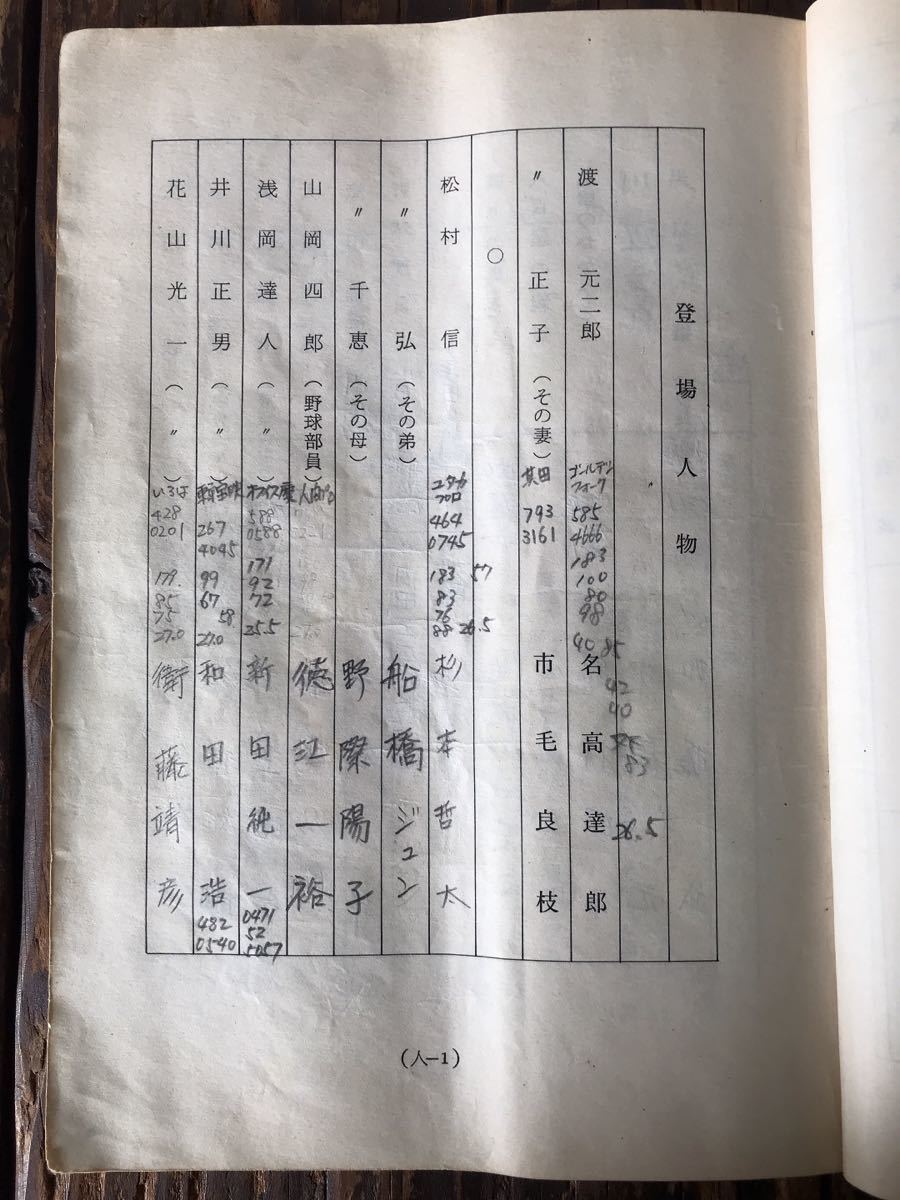 登場人物
渡 元二郎
ゴールデン
フォーク
585
4666
183
100
80
98
名高達郎
40 85
42
40
83
26.5
〃 正子(その妻)
793
3161
市毛良枝
○
松村 信
464
0745
183 57
83
76
88 26.5
杉本哲太
〃 弘(その弟)
船橋ジュン
〃 千恵(その母)
野際陽子
山岡四郎(野球部員)
徳江一裕
浅岡達人(〃)
オフィス
588
0588
171
92
72
25.5
新田純一
0471
52
5057
井川正男(〃)
267
4045
99
67
58
27.0
和田 浩
482
0540
花山光一(〃)
いろは
428
0201
179.
85
75
27.0
衛藤靖彦
(人-1)